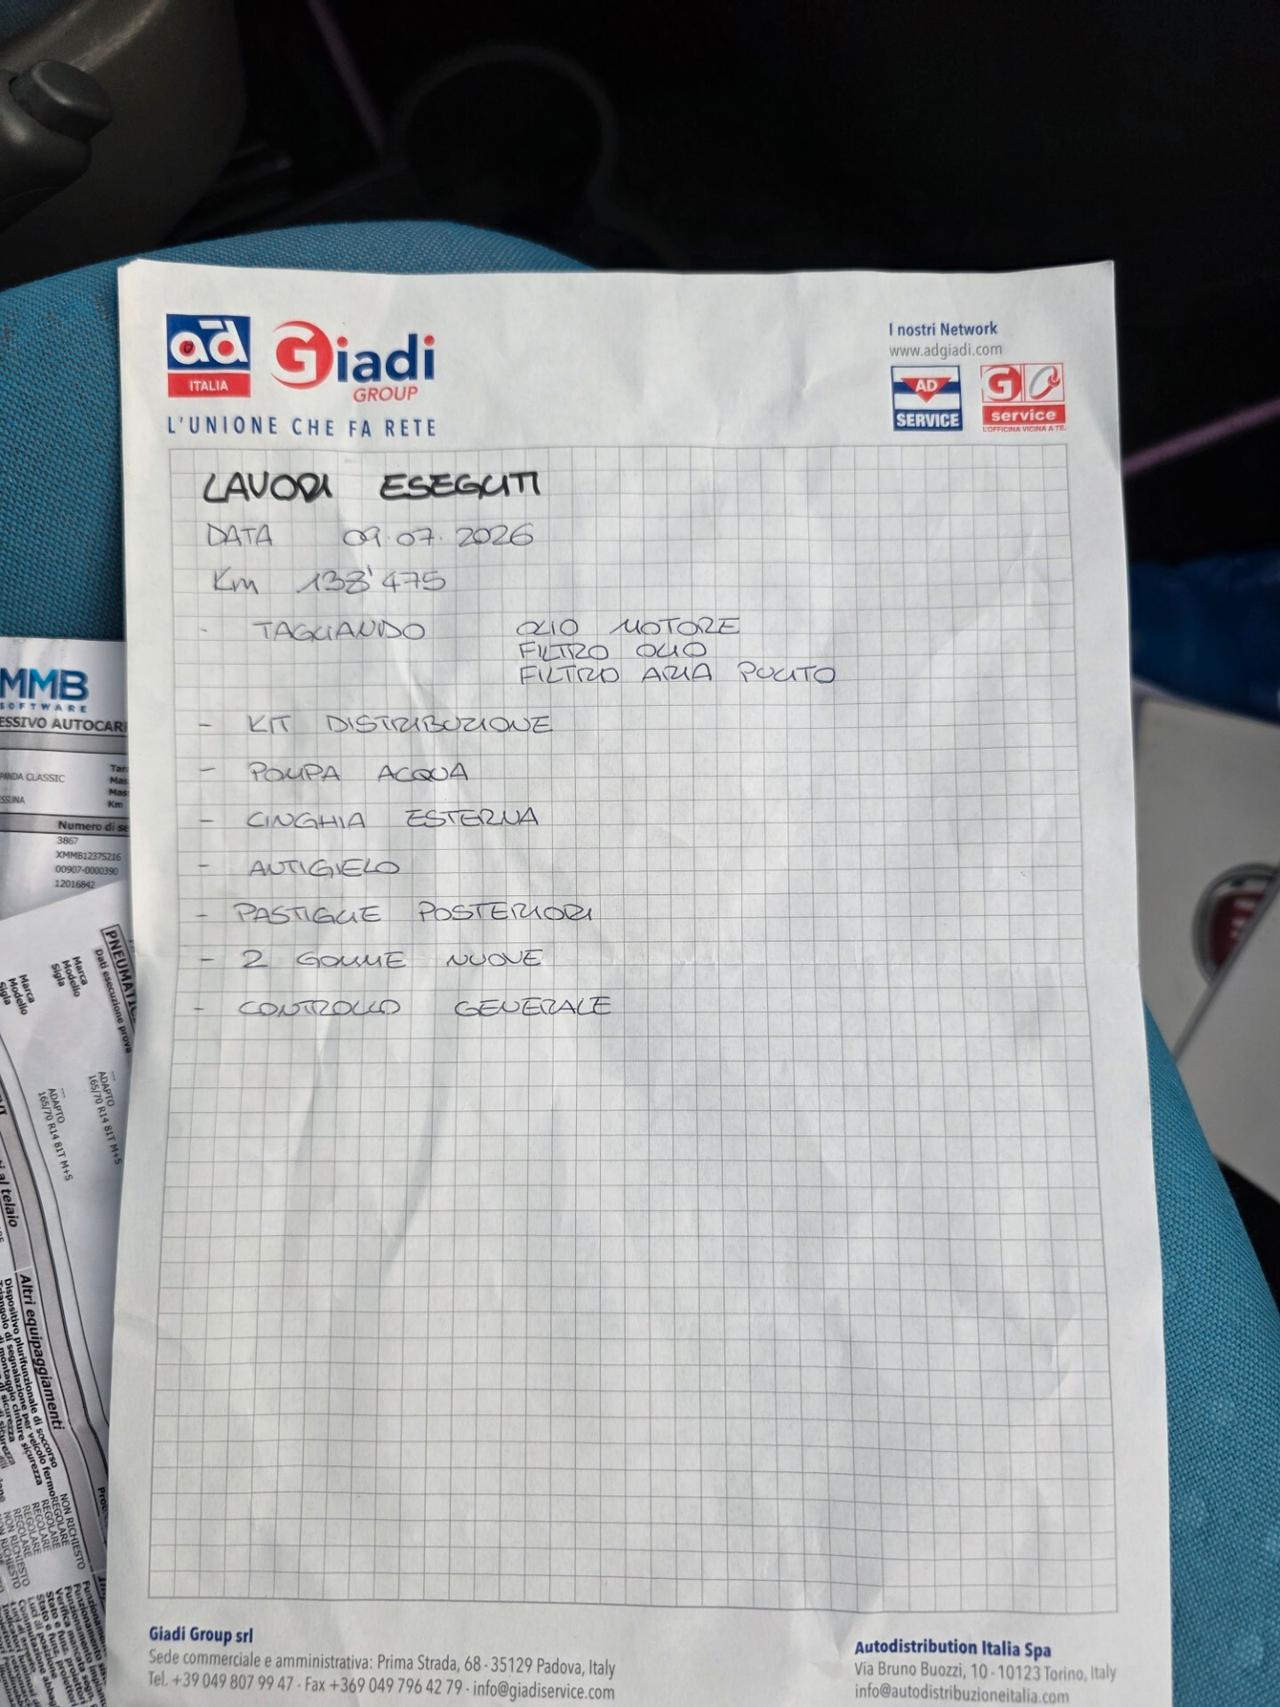 ad
ITALIA
Giadi
GROUP
L'UNIONE CHE FA RETE
I nostri Network
www.adgiadi.com
AD
SERVICE
G
service
L'OFFICINA VICINA A TE.
LAVORI ESEGUITI
DATA 09.07.2026
Km 138'475
- TAGLIANDO OLIO MOTORE
FILTRO OLIO
FILTRO ARIA PULITO
- KIT DISTRIBUZIONE
- POMPA ACQUA
- CINGHIA ESTERNA
- ANTIGIELO
- PASTIGLIE POSTERIORI
- 2 GOMME NUOVE
- CONTROLLO GENERALE
Giadi Group srl
Sede commerciale e amministrativa: Prima Strada, 68 - 35129 Padova, Italy
Tel. +39 049 807 99 47 - Fax +369 049 796 42 79 - info@giadiservice.com
Autodistribution Italia Spa
Via Bruno Buozzi, 10 - 10123 Torino, Italy
info@autodistribuzioneitalia.com
MMB
SOFTWARE
ESSIVO AUTOCAR
PANDA CLASSIC
Tar
Mas
Mas
Km
Numero di se
3867
XMMB12375216
00907-0000390
12016842
PNEUMATIC
Dati esecuzione prova
Marca
Modello
Sigla
Marca
Modello
Sigla
---
ADAPTO
165/70 R14 81T M+S
---
ADAPTO
165/70 R14 81T M+S
al telaio
Altri equipaggiamenti
Dispositivo plurifunzionale di soccorso
Triangolo di segnalazione per veicolo fermo
NON RICHIESTO
REGOLARE
REGOLARE
REGOLARE
REGOLARE
NON RICHIESTO